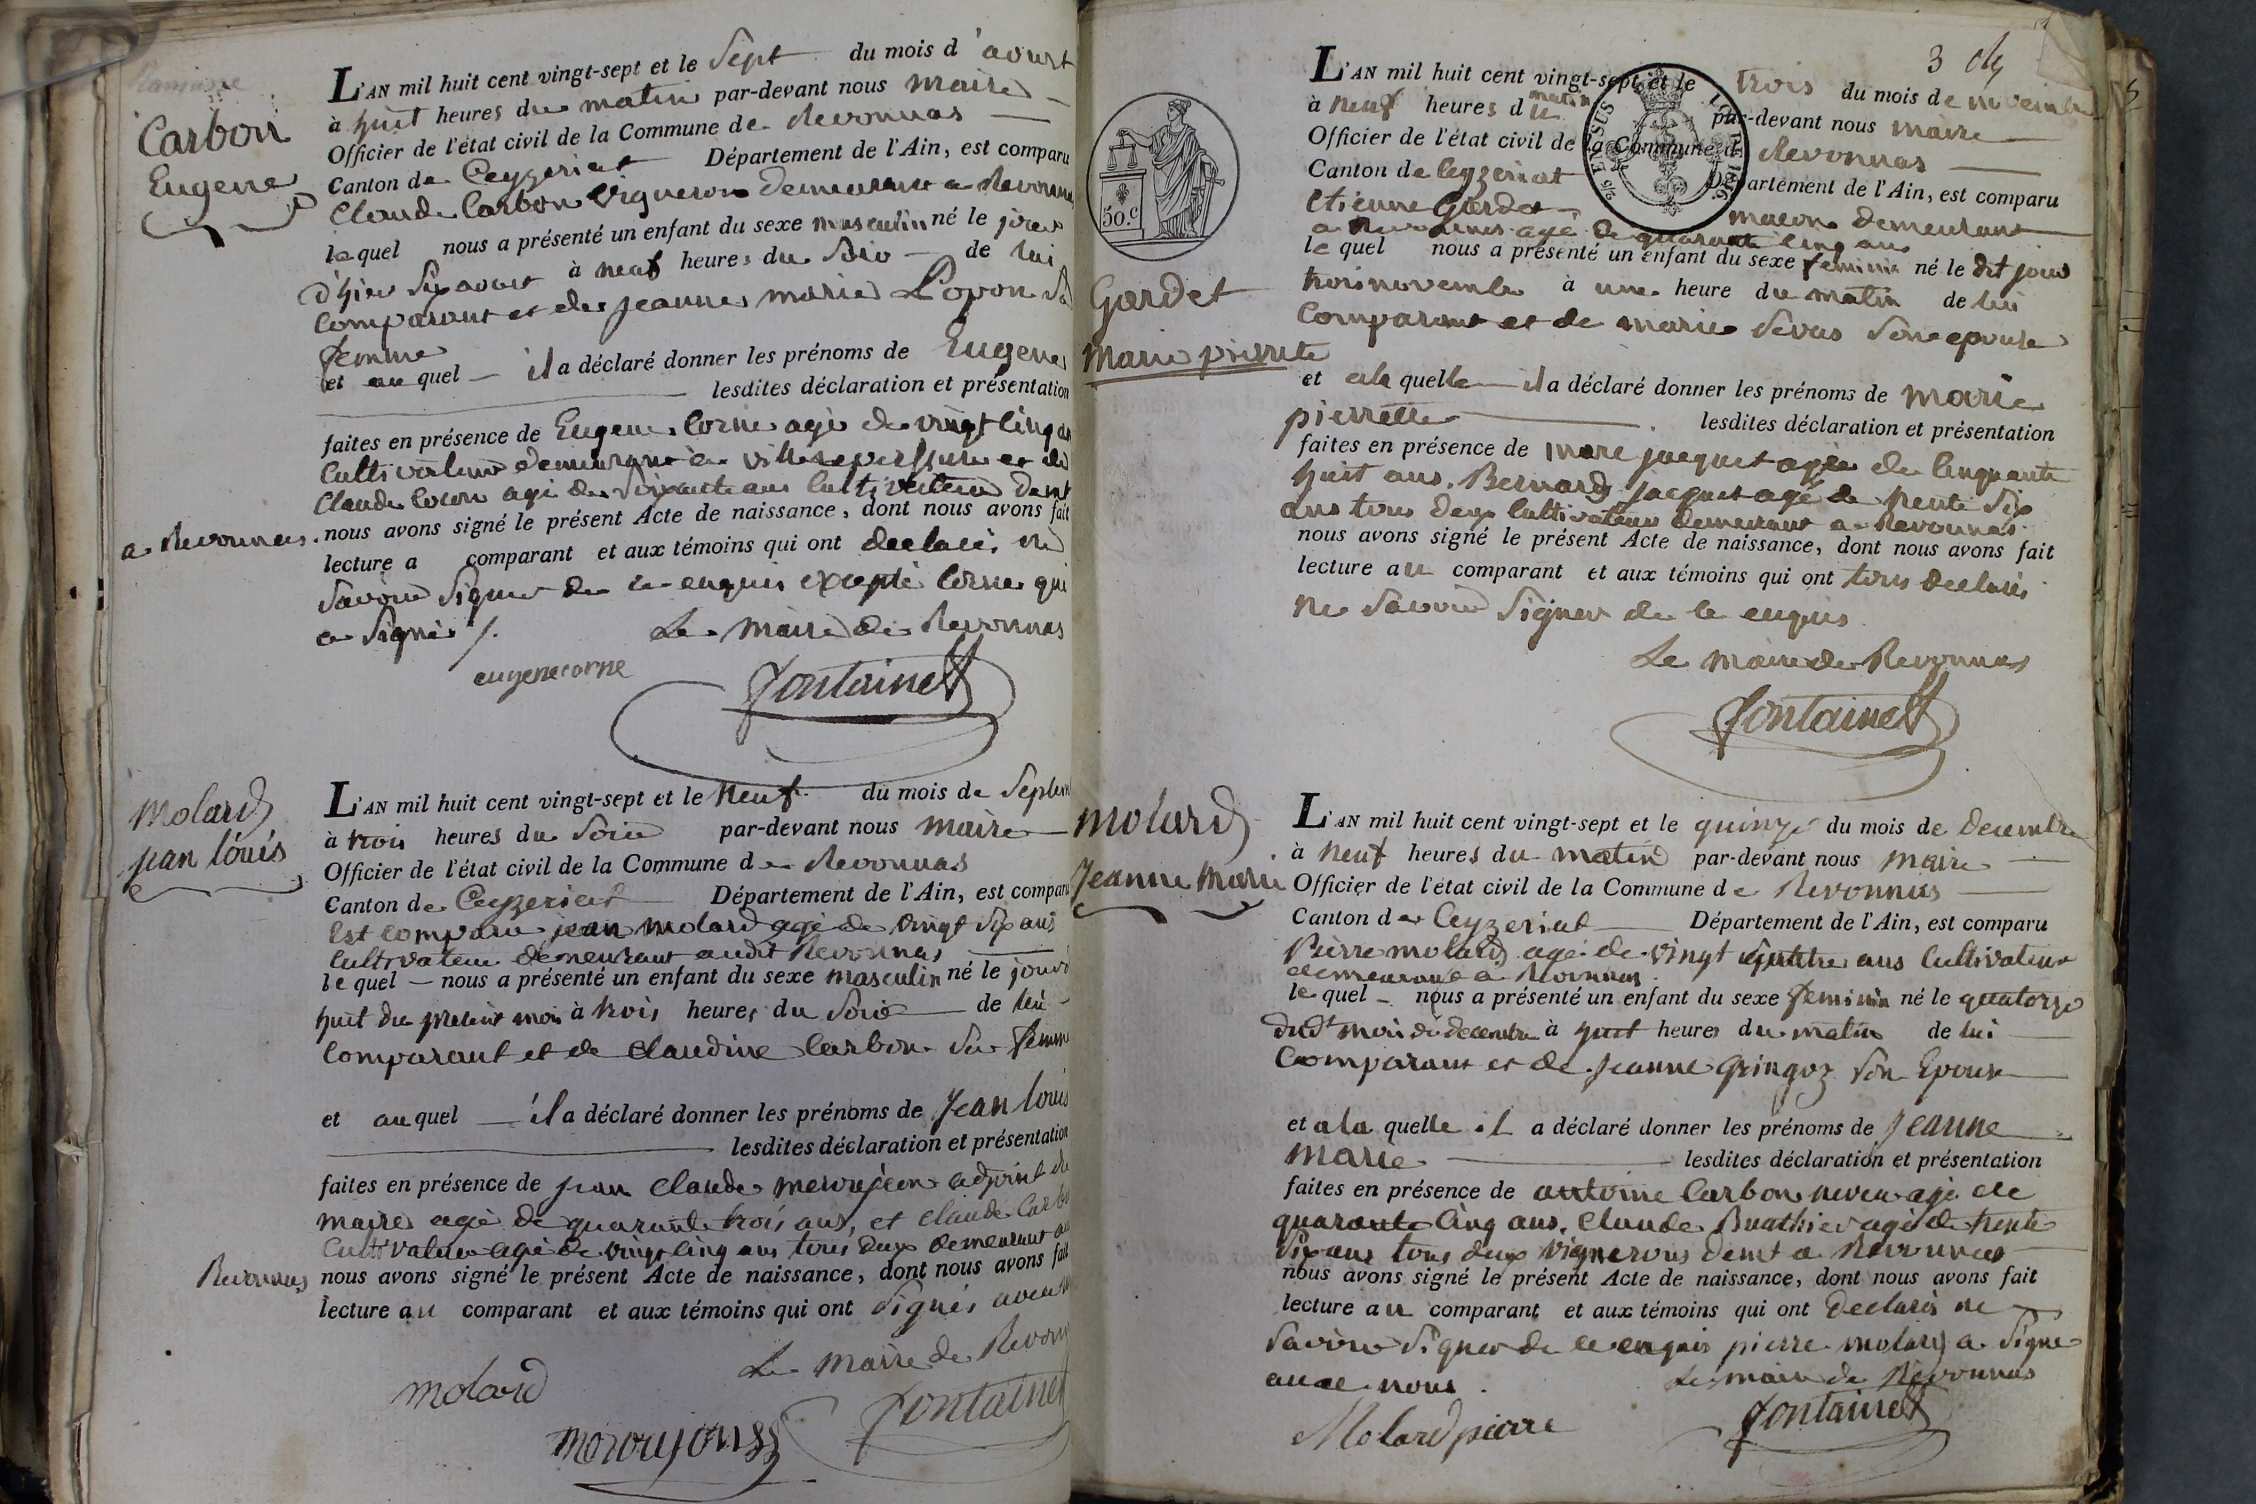 Carbon
Eugene
L'AN mil huit cent vingt-sept et le Sept du mois d'aoust
à huit heures du matin par-devant nous maire
Officier de l'état civil de la Commune de Revonnas
Canton de Ceyzeriat Département de l'Ain, est comparu
Claude Carbon vigneron demeurant a Revonnas
lequel nous a présenté un enfant du sexe masculin né le jour
d'hier six aout à neuf heures du Soir de lui
Comparant et de Jeanne marie Popon Sa
femme
et au quel il a déclaré donner les prénoms de Eugene
lesdites déclaration et présentation
faites en présence de Eugene Corne agé de vingt Cinq ans
Cultivateur demeurant a et de
Claude agé de Soixante ans Cultivateur demt
a Revonnas. nous avons signé le présent Acte de naissance, dont nous avons fait
lecture a comparant et aux témoins qui ont declaré ne
Savoir Signer de ce enquis excepté Corne qui
a Signé /.
Le Maire de Revonnas
eugene corne
Fontainet
Molard
jean louis
L'AN mil huit cent vingt-sept et le neuf du mois de Septem
à trois heures du Soir par-devant nous maire
Officier de l'état civil de la Commune de Revonnas
Canton de Ceyzeriat Département de l'Ain, est comparu
Est comparu jean molard agé de vingt Six ans
Cultivateur demeurant audit Revonnas
lequel nous a présenté un enfant du sexe masculin né le jour
huit du présent mois à trois heures du Soir de lui
Comparant et de Claudine Carbon Sa femme
et au quel il a déclaré donner les prénoms de Jean louis
lesdites déclaration et présentation
faites en présence de jean Claude adjoint du
maire agé de quarante trois ans, et Claude Carbon
Cultivateur agé de vingt cinq ans tous deux demeurant au
Revonnas nous avons signé le présent Acte de naissance, dont nous avons fait
lecture au comparant et aux témoins qui ont Signés avec n
Le Maire de Revonn
molard
Fontainet
50.c
3
Gardet
Marie pierrette
L'AN mil huit cent vingt-sept et le trois du mois de novembre
à neuf heures du matin par-devant nous maire
Officier de l'état civil de la Commune d Revonnas
Canton de Ceyzeriat Département de l'Ain, est comparu
Etienne Gardet macon demeurant
a Revonnas agé de quarante Cinq ans
lequel nous a présenté un enfant du sexe feminin né le dit jour
trois novembre à une heure du matin de lui
Comparant et de marie Sevas Son epouse
et a la quelle il a déclaré donner les prénoms de Marie
pierrette lesdites déclaration et présentation
faites en présence de marc jacquet agée de Cinquante
huit ans, Bernard jacquet agé de trente Six
ans tous deux Cultivateurs demeurant a Revonnas
nous avons signé le présent Acte de naissance, dont nous avons fait
lecture au comparant et aux témoins qui ont tous declarés
ne Savoir Signer de ce enquis
Le Maire de Revonnas
Fontainet
Molard
Jeanne Marie
L'AN mil huit cent vingt-sept et le quinze du mois de decembre
à neuf heures du matin par-devant nous maire
Officier de l'état civil de la Commune de Revonnas
Canton de Ceyzeriat Département de l'Ain, est comparu
Pierre molard agé de vingt quatre ans Cultivateur
demeurant a Revonnas
lequel nous a présenté un enfant du sexe feminin né le quatorze
dudt mois de decembre à huit heures du matin de lui
Comparant et de Jeanne Gringoz Son Epouse
et a la quelle il a déclaré donner les prénoms de Jeanne
Marie lesdites déclaration et présentation
faites en présence de antoine Carbon neveu agé de
quarante Cinq ans, Claude Buathier agé de trente
Six ans tous deux vignerons demt a Revonnas
nous avons signé le présent Acte de naissance, dont nous avons fait
lecture au comparant et aux témoins qui ont declarés ne
Savoir Signer de ce enquis pierre molard a Signé
avec nous.
Le maire de Revonnas
Molard pierre
Fontainet